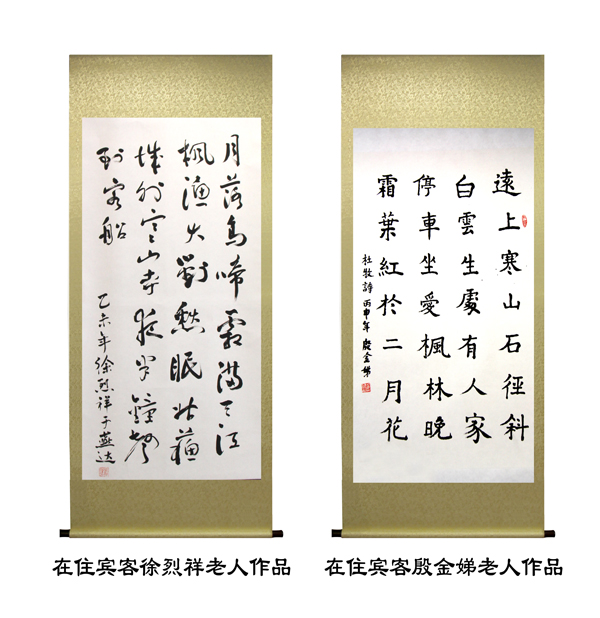 月落烏啼霜满天江
楓漁火對愁眠姑蘇
城外寒山寺夜半鐘聲
到客船
乙未年徐烈祥于燕达
遠上寒山石徑斜
白雲生處有人家
停車坐愛楓林晚
霜葉紅於二月花
杜牧詩 丙申年 殷金娣
在住宾客徐烈祥老人作品
在住宾客殷金娣老人作品